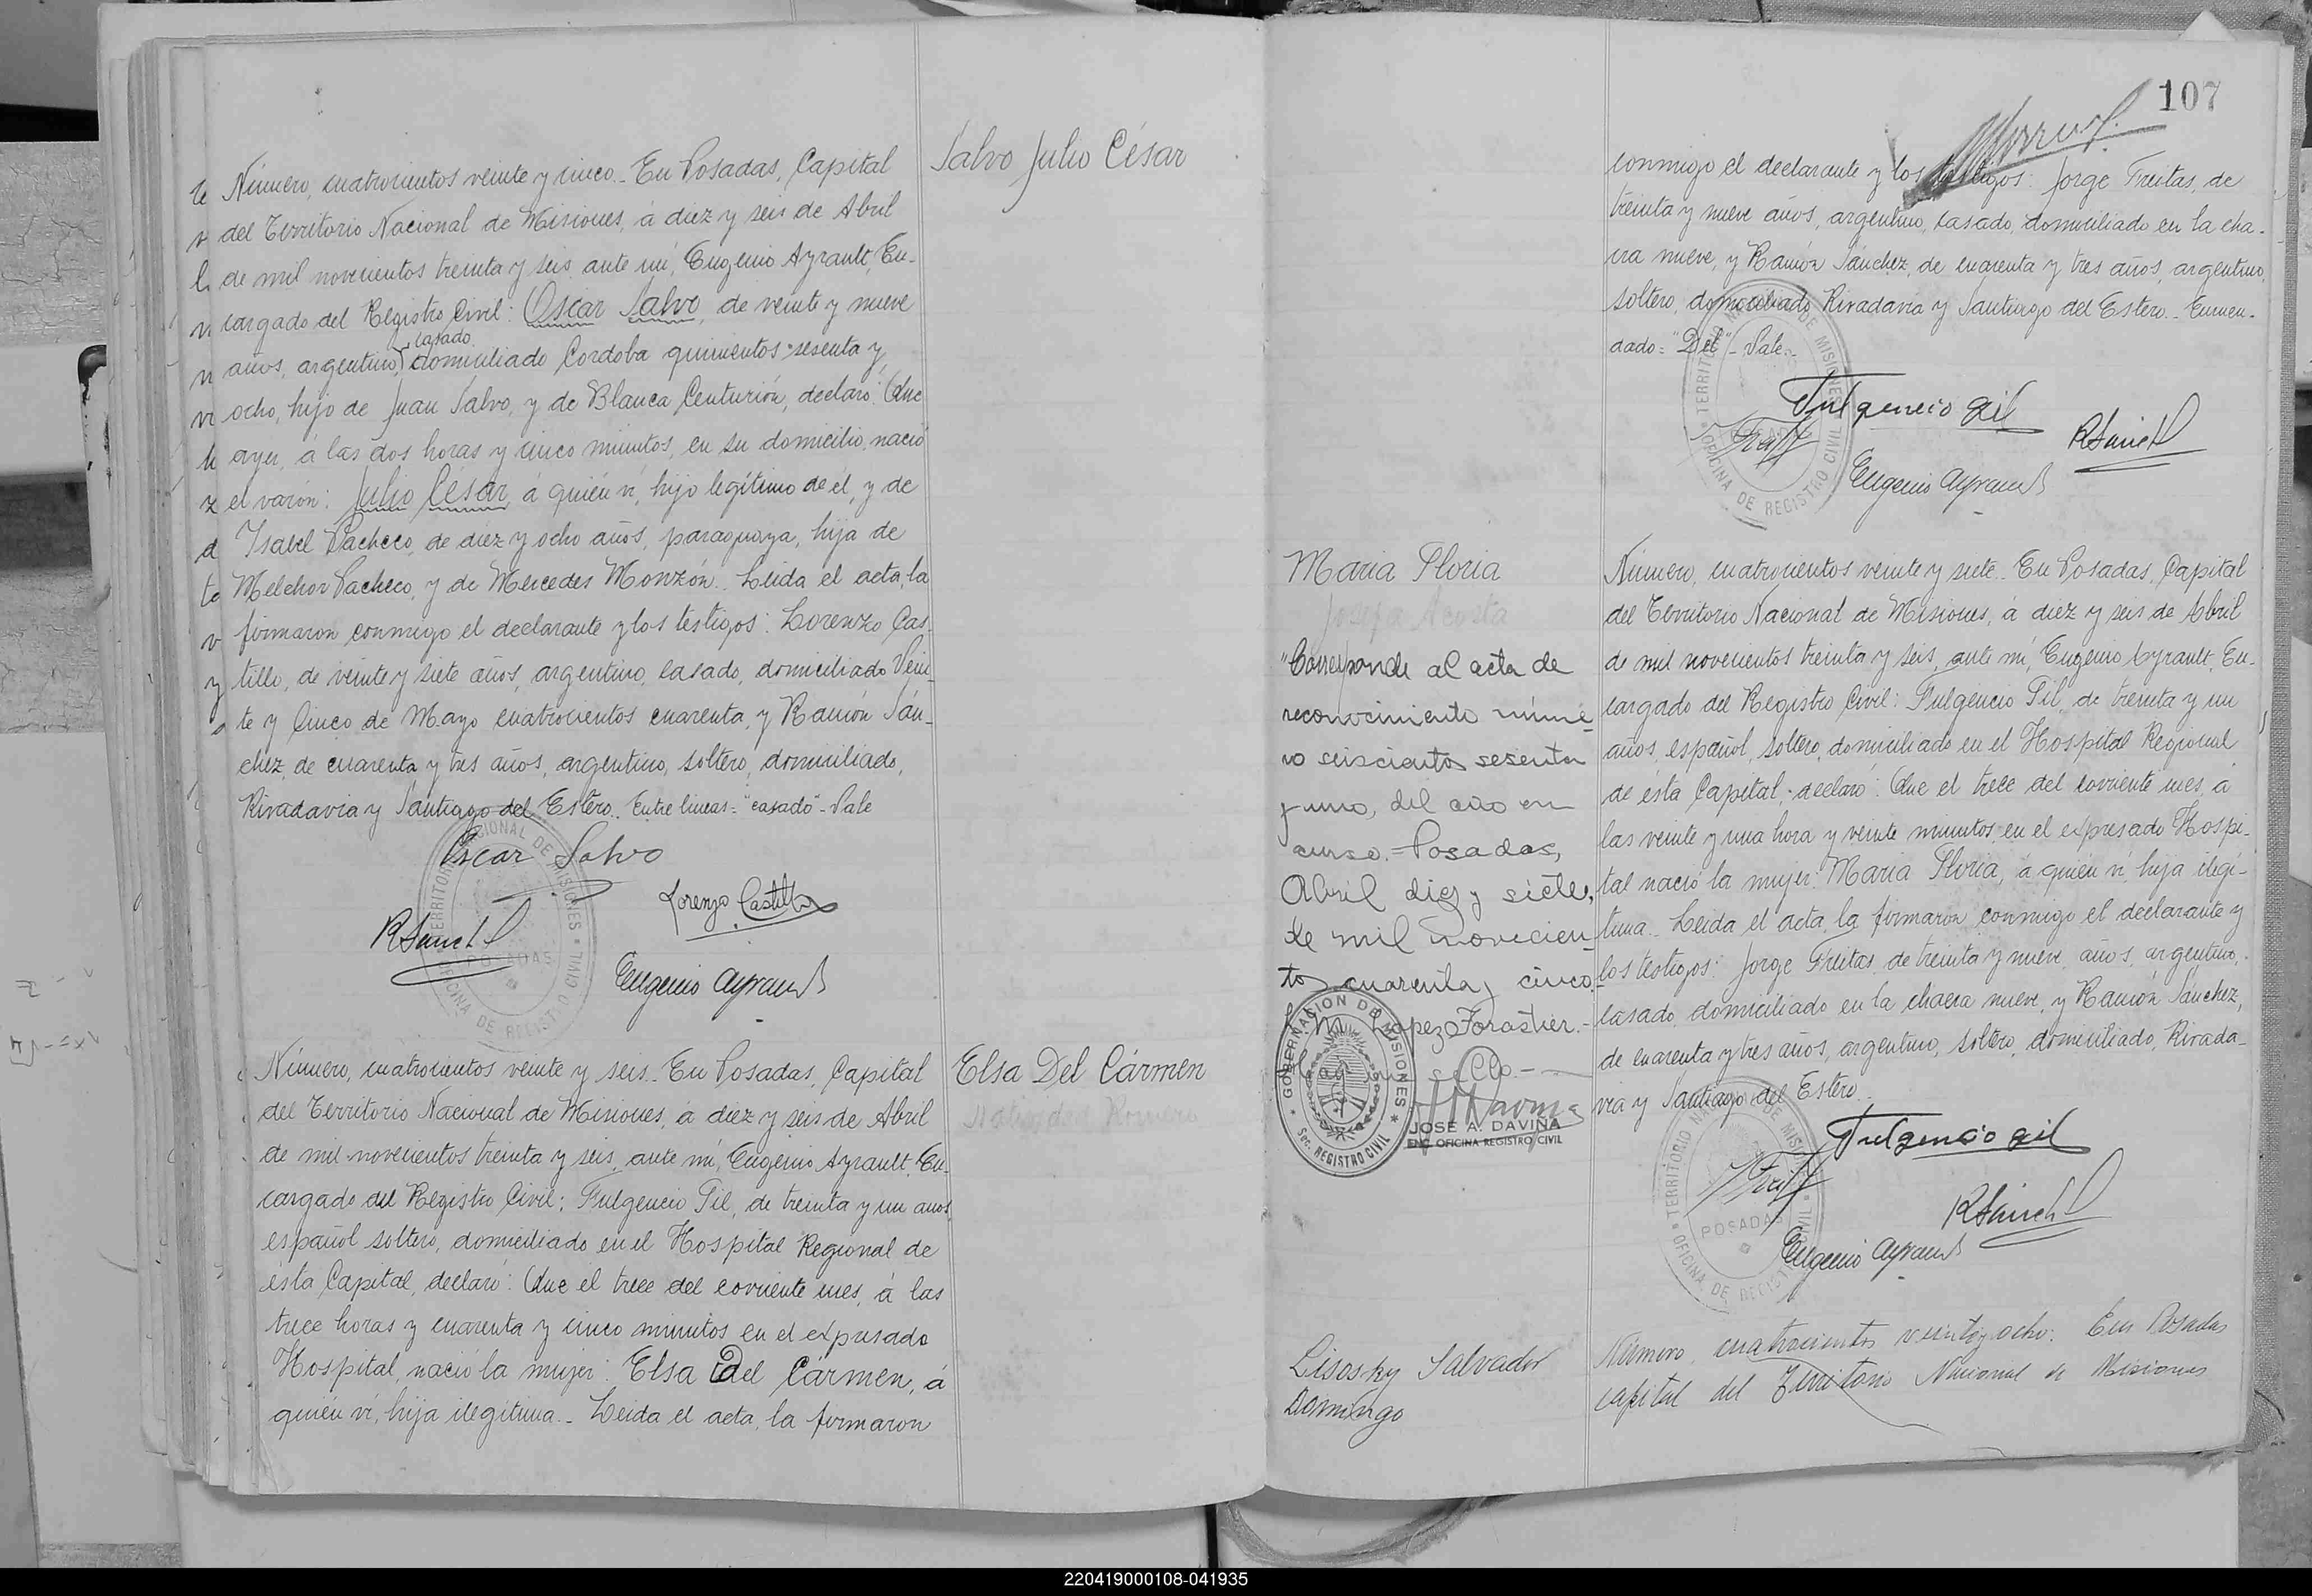 Salvo Julio César
Número, cuatrocientos veinte y cinco.. En Posadas, Capital
del Territorio Nacional de Misiones, á diez y seis de Abril
de mil novecientos treinta y seis, ante mí, Eugenio Ayrault, En-
cargado del Registro Civil: Oscar Salvo, de veinte y nueve
casado
años, argentino, domiciliado Cordoba quinientos sesenta y
ocho, hijo de Juan Salvo, y de Blanca Centurión, declaró: Que
ayer, á las dos horas y cinco minutos, en su domicilio, nació
el varón: Julio César, á quién ví, hijo legítimo de él, y de
Isabel Pacheco, de diez y ocho años, paraguaya, hija de
Melchor Pacheco, y de Mercedes Monzón.. Leída el acta, la
firmaron conmigo el declarante y los testigos: Lorenzo Cas-
tillo, de veinte y siete años, argentino, casado, domiciliado Vein-
te y Cinco de Mayo cuatrocientos cuarenta, y Ramón Sán-
chez, de cuarenta y tres años, argentino, soltero, domiciliado,
Rivadavia y Santiago del Estero.. Entre lineas="casado"-Vale
Oscar Salvo
Lorenzo Castillo
RSanch
Eugenio Ayrault
TERRITORIO NACIONAL DE MISIONES
POSADAS
OFICINA DE REGISTRO CIVIL
Elsa Del Cármen
Número, cuatrocientos veinte y seis.. En Posadas, Capital
del Territorio Nacional de Misiones, á diez y seis de Abril
de mil novecientos treinta y seis, ante mí, Eugenio Ayrault, En-
cargado del Registro Civil: Fulgencio Gil, de treinta y un años,
español, soltero, domiciliado en el Hospital Regional de
ésta Capital, declaró: Que el trece del corriente mes, á las
trece horas y cuarenta y cinco minutos en el expresado
Hospital, nació la mujer: Elsa Del Cármen, á
quién ví, hija ilegítima.. Leída el acta, la firmaron
107
conmigo el declarante y los testigos: Jorge Freitas, de
treinta y nueve años, argentino, casado, domiciliado en la cha-
cra nueve, y Ramón Sánchez, de cuarenta y tres años, argentino,
soltero, domiciliado, Rivadavia y Santiago del Estero.. Enmen-
dado="Del"-Vale..
Fulgencio Gil
RSanch
Eugenio Ayrault
TERRITORIO NACIONAL DE MISIONES
OFICINA DE REGISTRO CIVIL
Maria Gloria
Josefa Acosta
"Corresponde al acta de
reconocimiento núme-
ro seiscientos sesenta
y uno, del año en
curso.=Posadas,
Abril diez y siete,
de mil novecien-
tos cuarenta y cinco.-
López Forastier.-
JOSE A. DAVIÑA
ENC. OFICINA REGISTRO CIVIL
GOBERNACION DE MISIONES
Sec. REGISTRO CIVIL
Número, cuatrocientos veinte y siete.. En Posadas, Capital
del Territorio Nacional de Misiones, á diez y seis de Abril
de mil novecientos treinta y seis, ante mí, Eugenio Ayrault, En-
cargado del Registro Civil: Fulgencio Gil, de treinta y un
años, español, soltero, domiciliado en el Hospital Regional
de ésta Capital, declaró: Que el trece del corriente mes, á
las veinte y una hora y veinte minutos, en el expresado Hospi-
tal nació la mujer: Maria Gloria, á quién ví, hija ilegí-
tima.. Leída el acta, la firmaron conmigo el declarante y
los testigos: Jorge Freitas, de treinta y nueve, años, argentino,
casado, domiciliado en la chacra nueve, y Ramón Sánchez,
de cuarenta y tres años, argentino, soltero, domiciliado, Rivada-
via y Santiago del Estero..
Fulgencio Gil
RSanch
Eugenio Ayrault
TERRITORIO NACIONAL DE MISIONES
POSADAS
OFICINA DE REGISTRO CIVIL
Lisosky Salvador
Domingo
Número, cuatrocientos veinte y ocho: En Posadas
capital del Territorio Nacional de Misiones
220419000108-041935